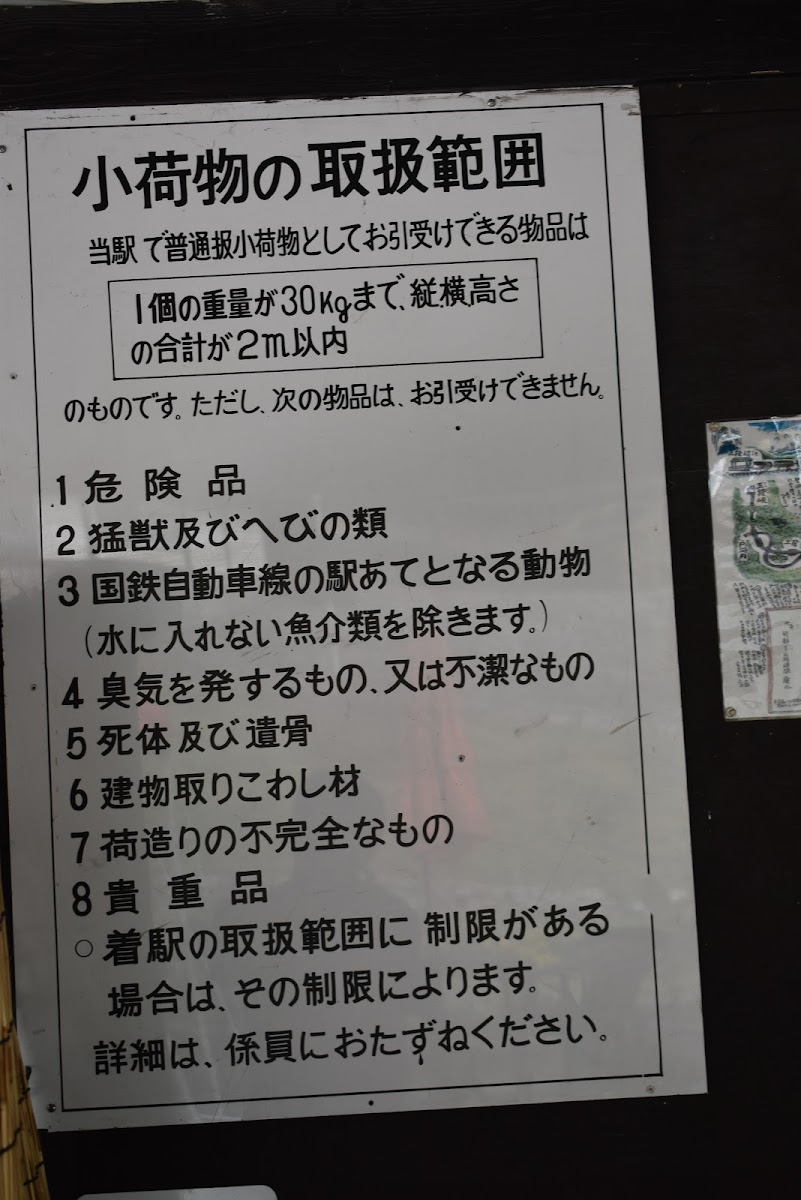 小荷物の取扱範囲
当駅で普通扱小荷物としてお引受けできる物品は
1個の重量が30Kgまで、縦横高さ
の合計が2m以内
のものです。ただし、次の物品は、お引受けできません。
1 危険品
2 猛獣及びへびの類
3 国鉄自動車線の駅あてとなる動物
(水に入れない魚介類を除きます。)
4 臭気を発するもの、又は不潔なもの
5 死体及び遺骨
6 建物取りこわし材
7 荷造りの不完全なもの
8 貴重品
○ 着駅の取扱範囲に制限がある
場合は、その制限によります。
詳細は、係員におたずねください。